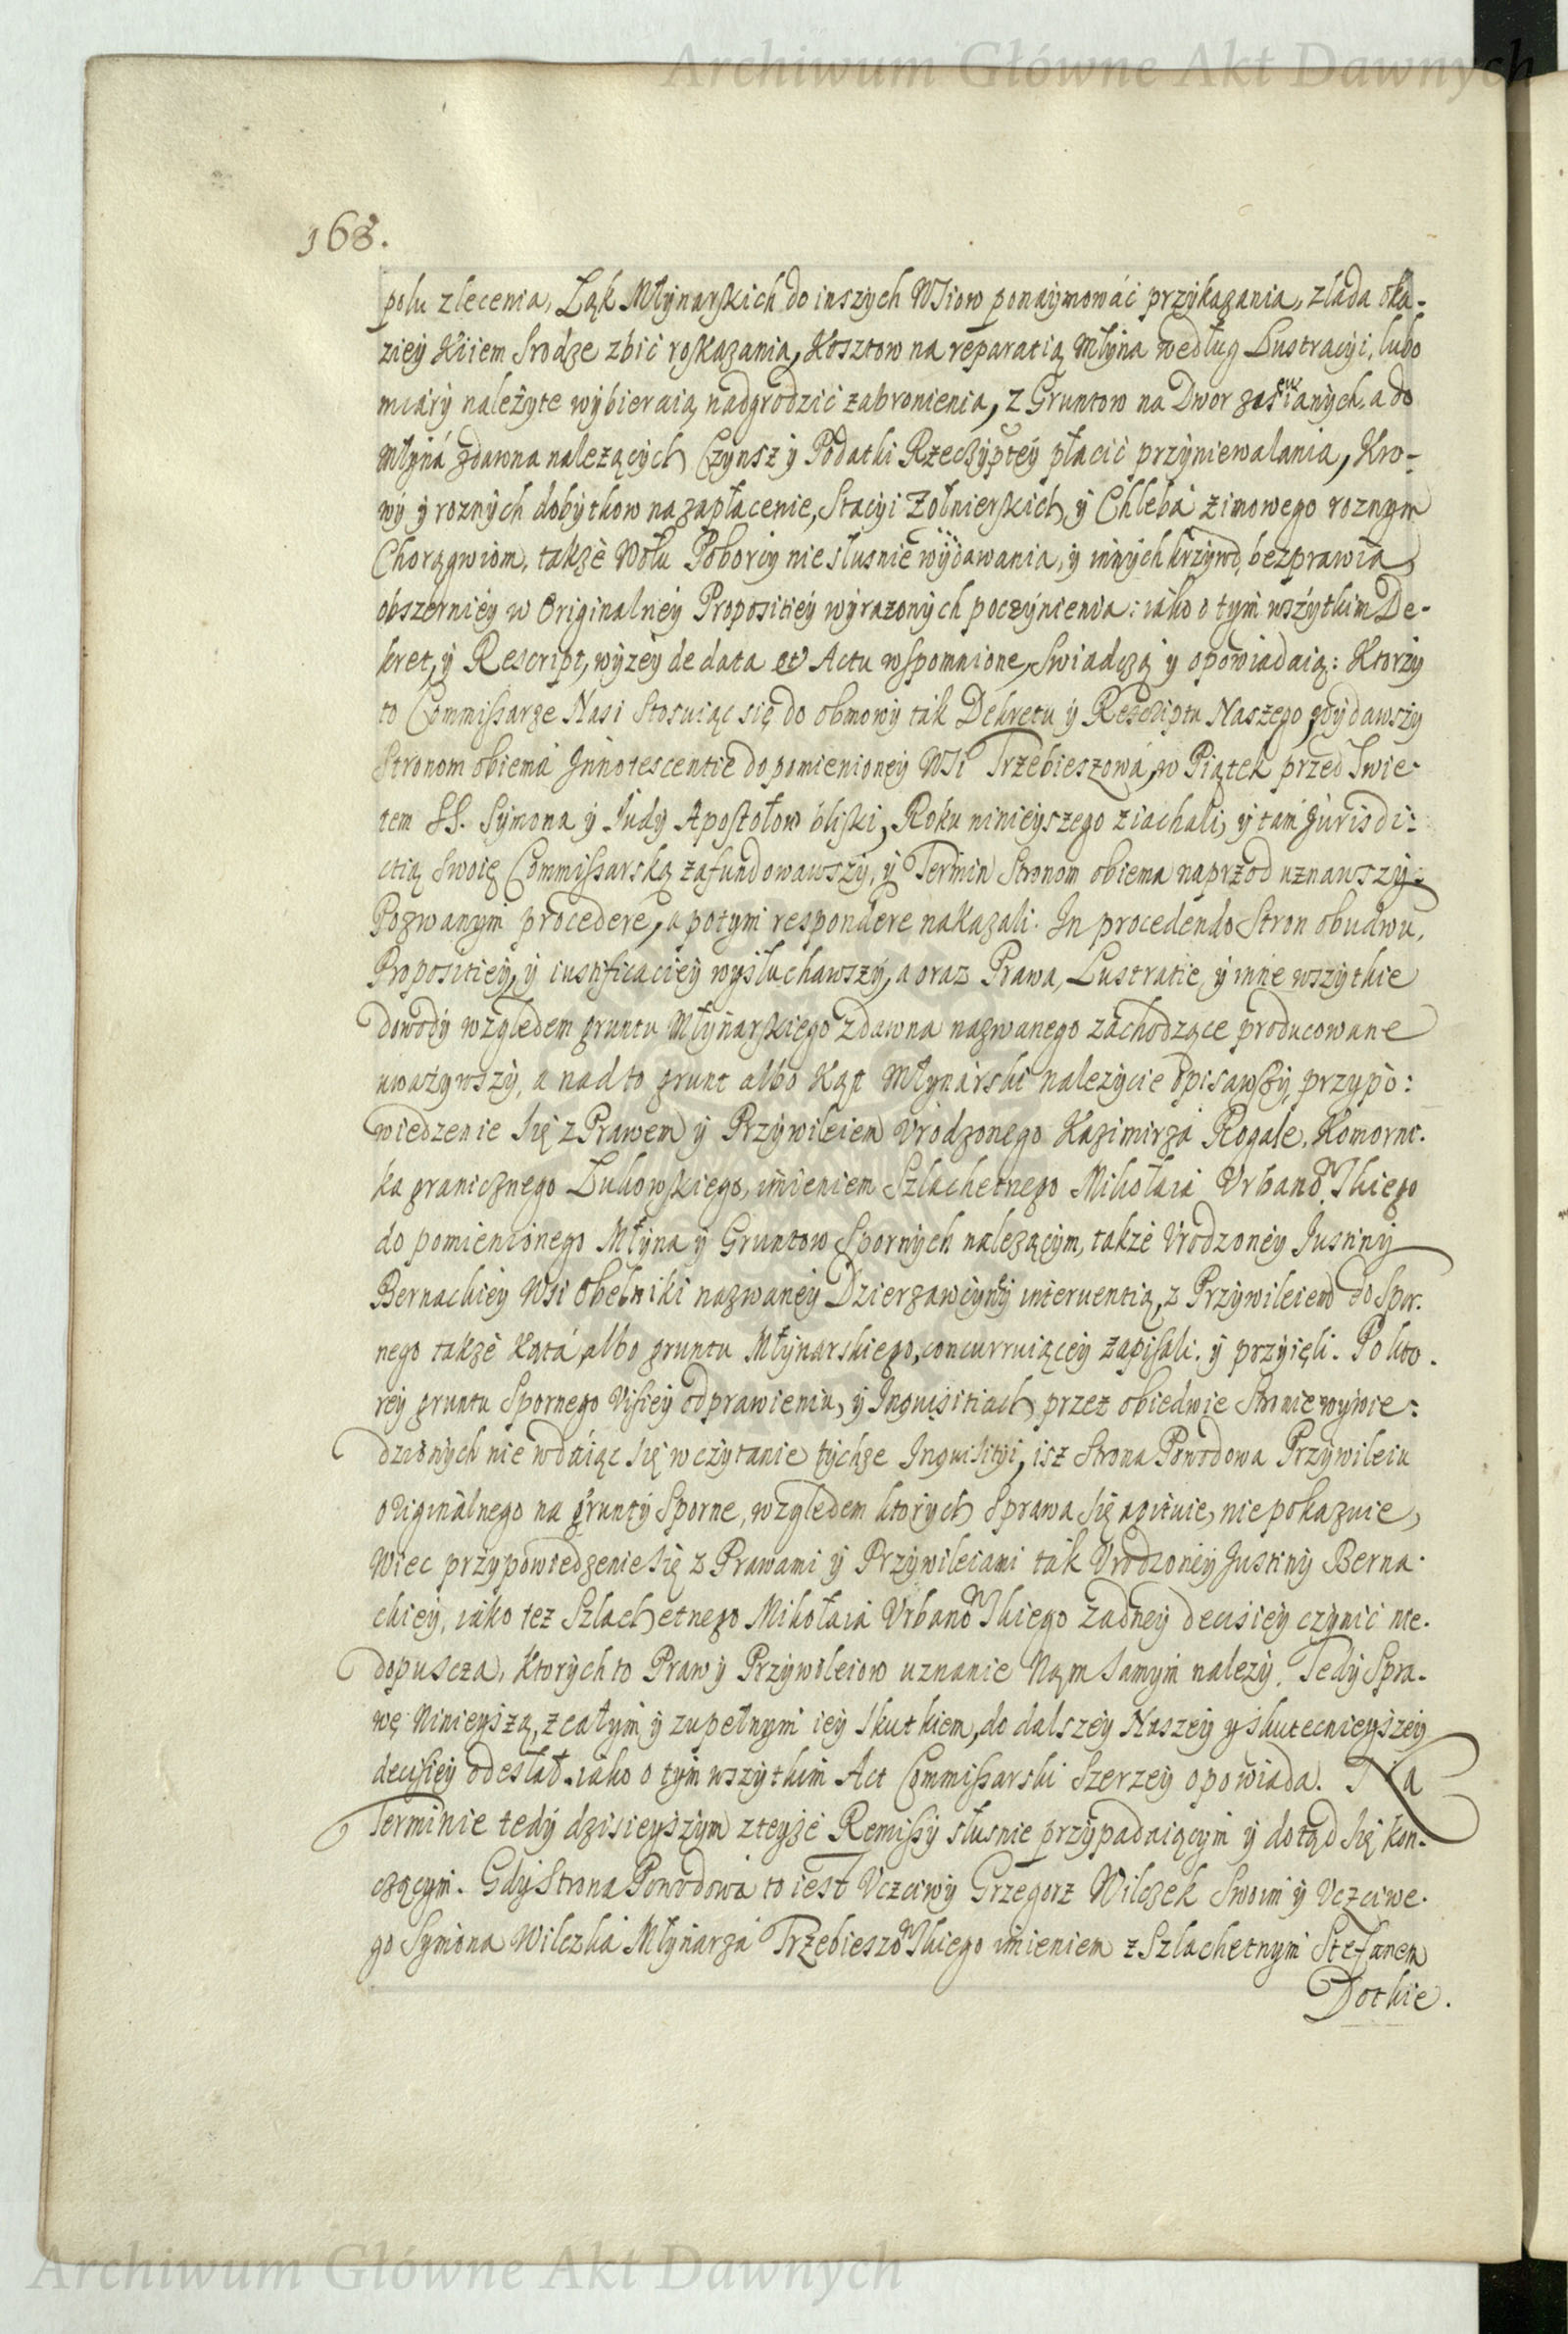 Archiwum Główne Akt Dawnych
168.
polu zlecenia, Łąk Młynarskich do inszych Wsiow ponaymować przykazania, zlada oka-
zиey Kiiem Srodze zbić roskazania, Kosztow na reparatią Młyna według Lustracyi, lubo
miary należyte wybieraią nadgrodzić zabronienia, z Gruntow na Dwor zasiewanych, a do
Młyná zdawna należących Czynsz y Podatki Rzeczyptey płacić przyniewalania, Kro-
wy y roznych dobytkow na zapłacenie, Stacyi Zołnierskich y Chleba zimowego roznym
Chorągwiom, także Wołu Poborcy nie słusnie wydawania, y innych krzywd, bezprawia
obszerniey w Originalney Propositiey wyrazonych poczynienia: iako o tym wszytkim De-
kret, y Rescript, wyzey de data et Actu wspomnione, Swiadczą y opowiadaią: Ktorzy
to Commissarze Nasi Stosuiąc się do obmowy tak Dekretu y Rescriptu Naszego, wydawszy
Stronom obiema Innotescentie do pomienioney Wsi Trzebieszowa, w Piątek przed Swie-
tem SS. Symona y Judy Apostołow bliski, Roku ninieyszego ziachali, y tam Jurisdi-
ctią Swoię Commissarską zafundowawszy, y Termin Stronom obiema naprzod uznawszy,
Pozwanym procedere, a potym respondere nakazali. In procedendo Stron obudwu,
Propositiey, y iustificaciey wysłuchawszy, a oraz Prawa, Lustratie, y inne wszytkie
dowody względem gruntu Młynarskiego zdawna nazwanego zachodzące producowane
uważywszy, a nad to grunt albo Kąt Młynarski należycie opisawszy, przypo:
wiedzenie się z Prawem y Przywileiem Vrodzonego Kazimirza Rogale, Komorni-
ka granicznego Łukowskiego, imieniem Szlachetnego Mikołaia Vrbanowskiego
do pomienionego Młyna y Gruntow Spornych należącym, także Vrodzoney Justiny
Bernackiey Wsi Obelniki nazwaney Dzierzawcyny interuentią, z Przywileiem do Spor-
nego także Kąta, albo gruntu Młynarskiego, concurruiącey zapisali, y przyięli. Po kto-
rey gruntu Spornego Visiey odprawieniu, y Inquisitiach przez obiedwie Stronie wywie-
dzionych nie wdaiąc się w czytanie tychze Inquisityi, isz Strona Powodowa Przywileiu
originalnego na grunty Sporne, względem ktorych Sprawa się agituie, nie pokazuie,
Wiec przypowiedzenie się z Prawami y Przywileiami tak Vrodzoney Justiny Berna-
ckiey, iako tez Szlachetnego Mikołaia Vrbanowskiego zadney decisiey czynić nie-
dopuscza, Ktorych to Praw y Przywileiow uznanie Nam samym nalezy. Tedy Spra-
wę Ninieyszą, z całym y zupełnym iey skutkiem, do dalszey Naszey y skutecznieyszey
decisiey odesłał, iako o tym wszytkim Act Commissarski Szerzey opowiada. Na
Terminie tedy dzisieyszym z teyże Remissy słusnie przypadaiącym y dotąd się kon-
czącym. Gdy Strona Powodowa to iest Vczciwy Grzegorz Wilczek Swoim y Vczciwe-
go Symona Wilczka Młynarza Trzebieszowskiego imieniem z Szlachetnym Stefanem
Dotkie.
Archiwum Główne Akt Dawnych